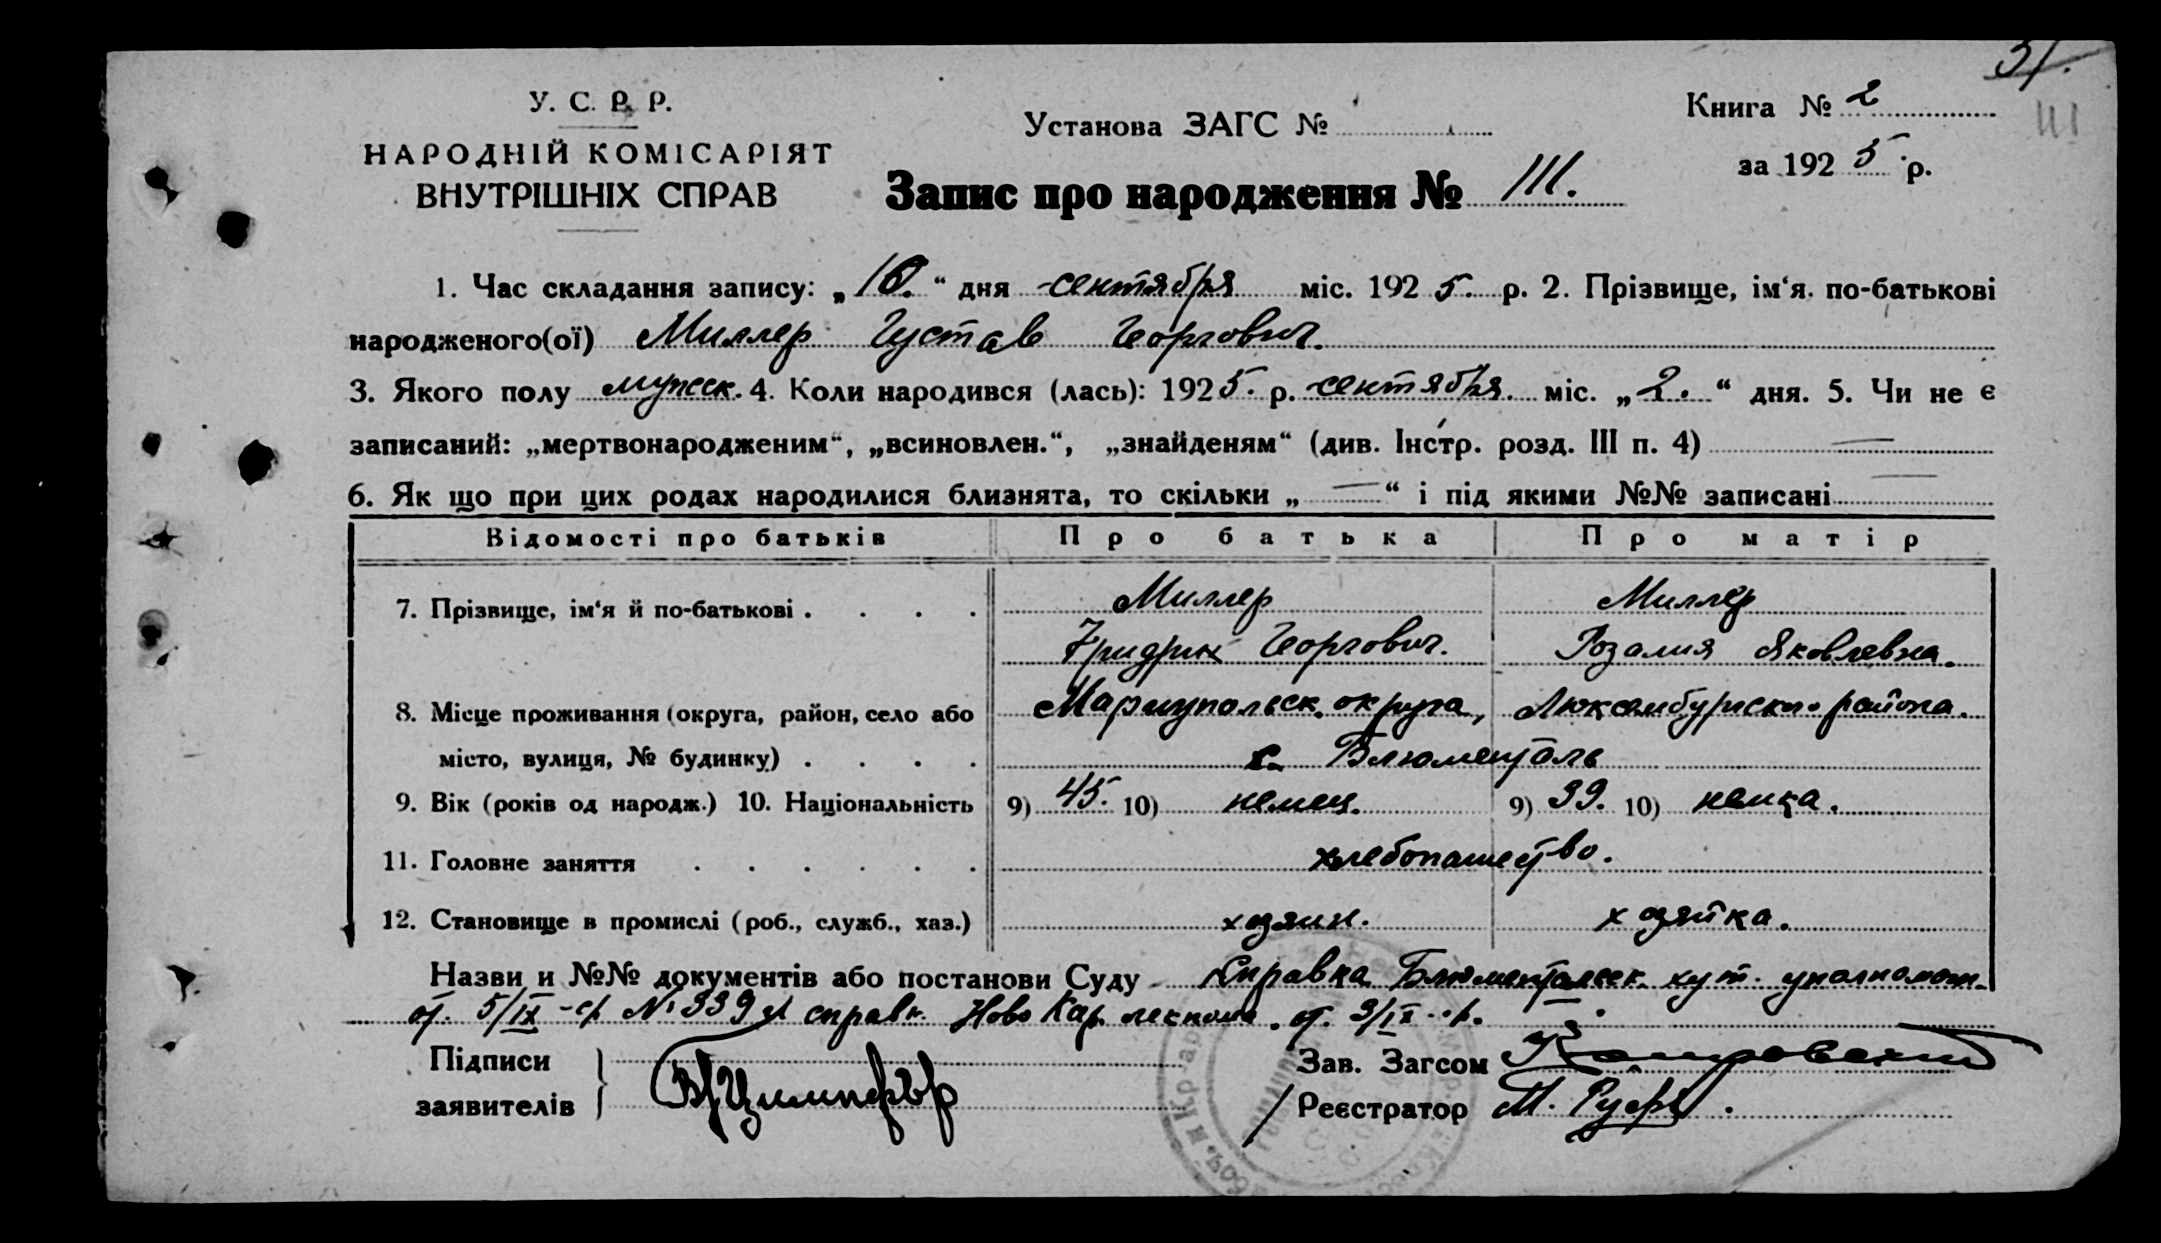 31.
У. С. Р. Р.
НАРОДНІЙ КОМІСАРІЯТ
ВНУТРІШНІХ СПРАВ
Установа ЗАГС №
Книга № 2
111
за 1925 р.
Запис про народження № 111.
1. Час складання запису: „10.“ дня сентября міс. 1925. р. 2. Прізвище, ім‘я, по-батькові
народженого(ої) Миллер Густав Георгович.
3. Якого полу мужск. 4. Коли народився (лась): 1925. р. сентября міс. „2.“ дня. 5. Чи не є
записаний: „мертвонародженим“, „всиновлен.“, „знайденям“ (див. Інстр. розд. III п. 4) —
6. Як що при цих родах народилися близнята, то скільки „—“ і під якими №№ записані —
Відомості про батьків Про батька Про матір
7. Прізвище, ім‘я й по-батькові . . . . Миллер Миллер
Фридрих Георгович. Розалия Яковлевна.
8. Місце проживання (округа, район, село або Мариупольск. округа, Люксембургского района.
місто, вулиця, № будинку) . . . . с. Блюменталь
9. Вік (років од народж.) 10. Національність 9) 45. 10) немец. 9) 39. 10) немка.
11. Головне заняття . . . . . . хлебопашество.
12. Становище в промислі (роб., служб., хаз.) хозяин. хозяйка.
Назви и №№ документів або постанови Суду Справка Блюментальск. хут. уполномоч.
от 5/IX № 339 справк. Ново Кар. от 9/IX
Підписи
заявителів
Зав. Загсом
Реєстратор М.